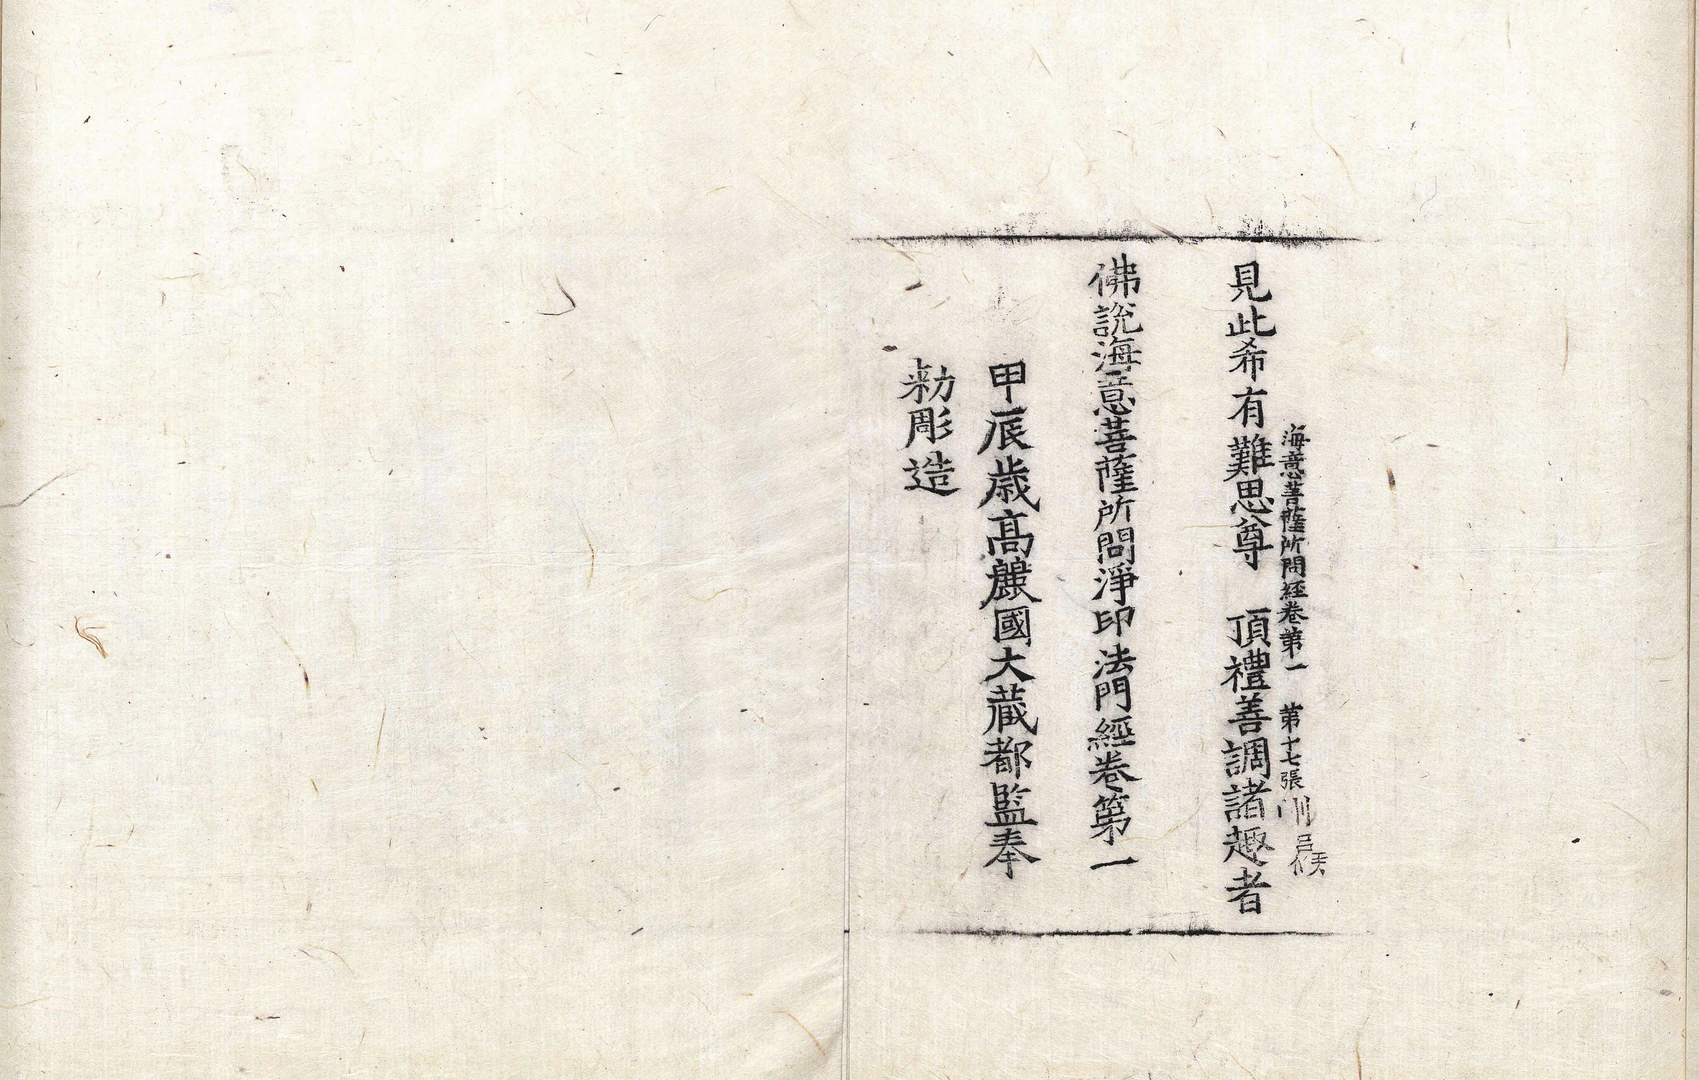 海意菩薩所問經卷第一 第十七張
見此希有難思尊 頂禮善調諸趣者
佛說海意菩薩所問淨印法門經卷第一
甲辰歲高麗國大藏都監奉
勅彫造